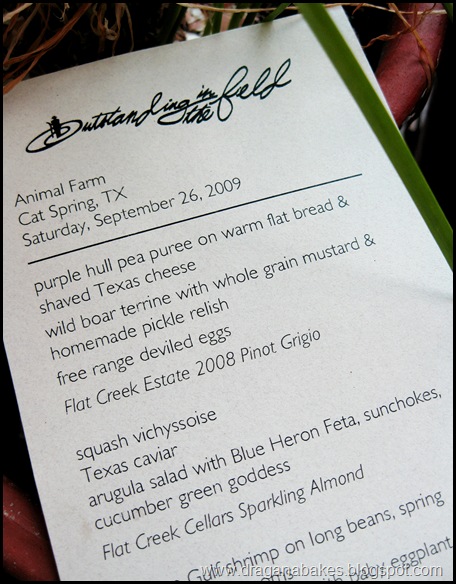 Outstanding in the field
Animal Farm
Cat Spring, TX
Saturday, September 26, 2009
purple hull pea puree on warm flat bread &
shaved Texas cheese
wild boar terrine with whole grain mustard &
homemade pickle relish
free range deviled eggs
Flat Creek Estate 2008 Pinot Grigio
squash vichyssoise
Texas caviar
arugula salad with Blue Heron Feta, sunchokes,
cucumber green goddess
Flat Creek Cellars Sparkling Almond
Gulf shrimp on long beans, spring
eggplant
www.draganabakes.blogspot.com